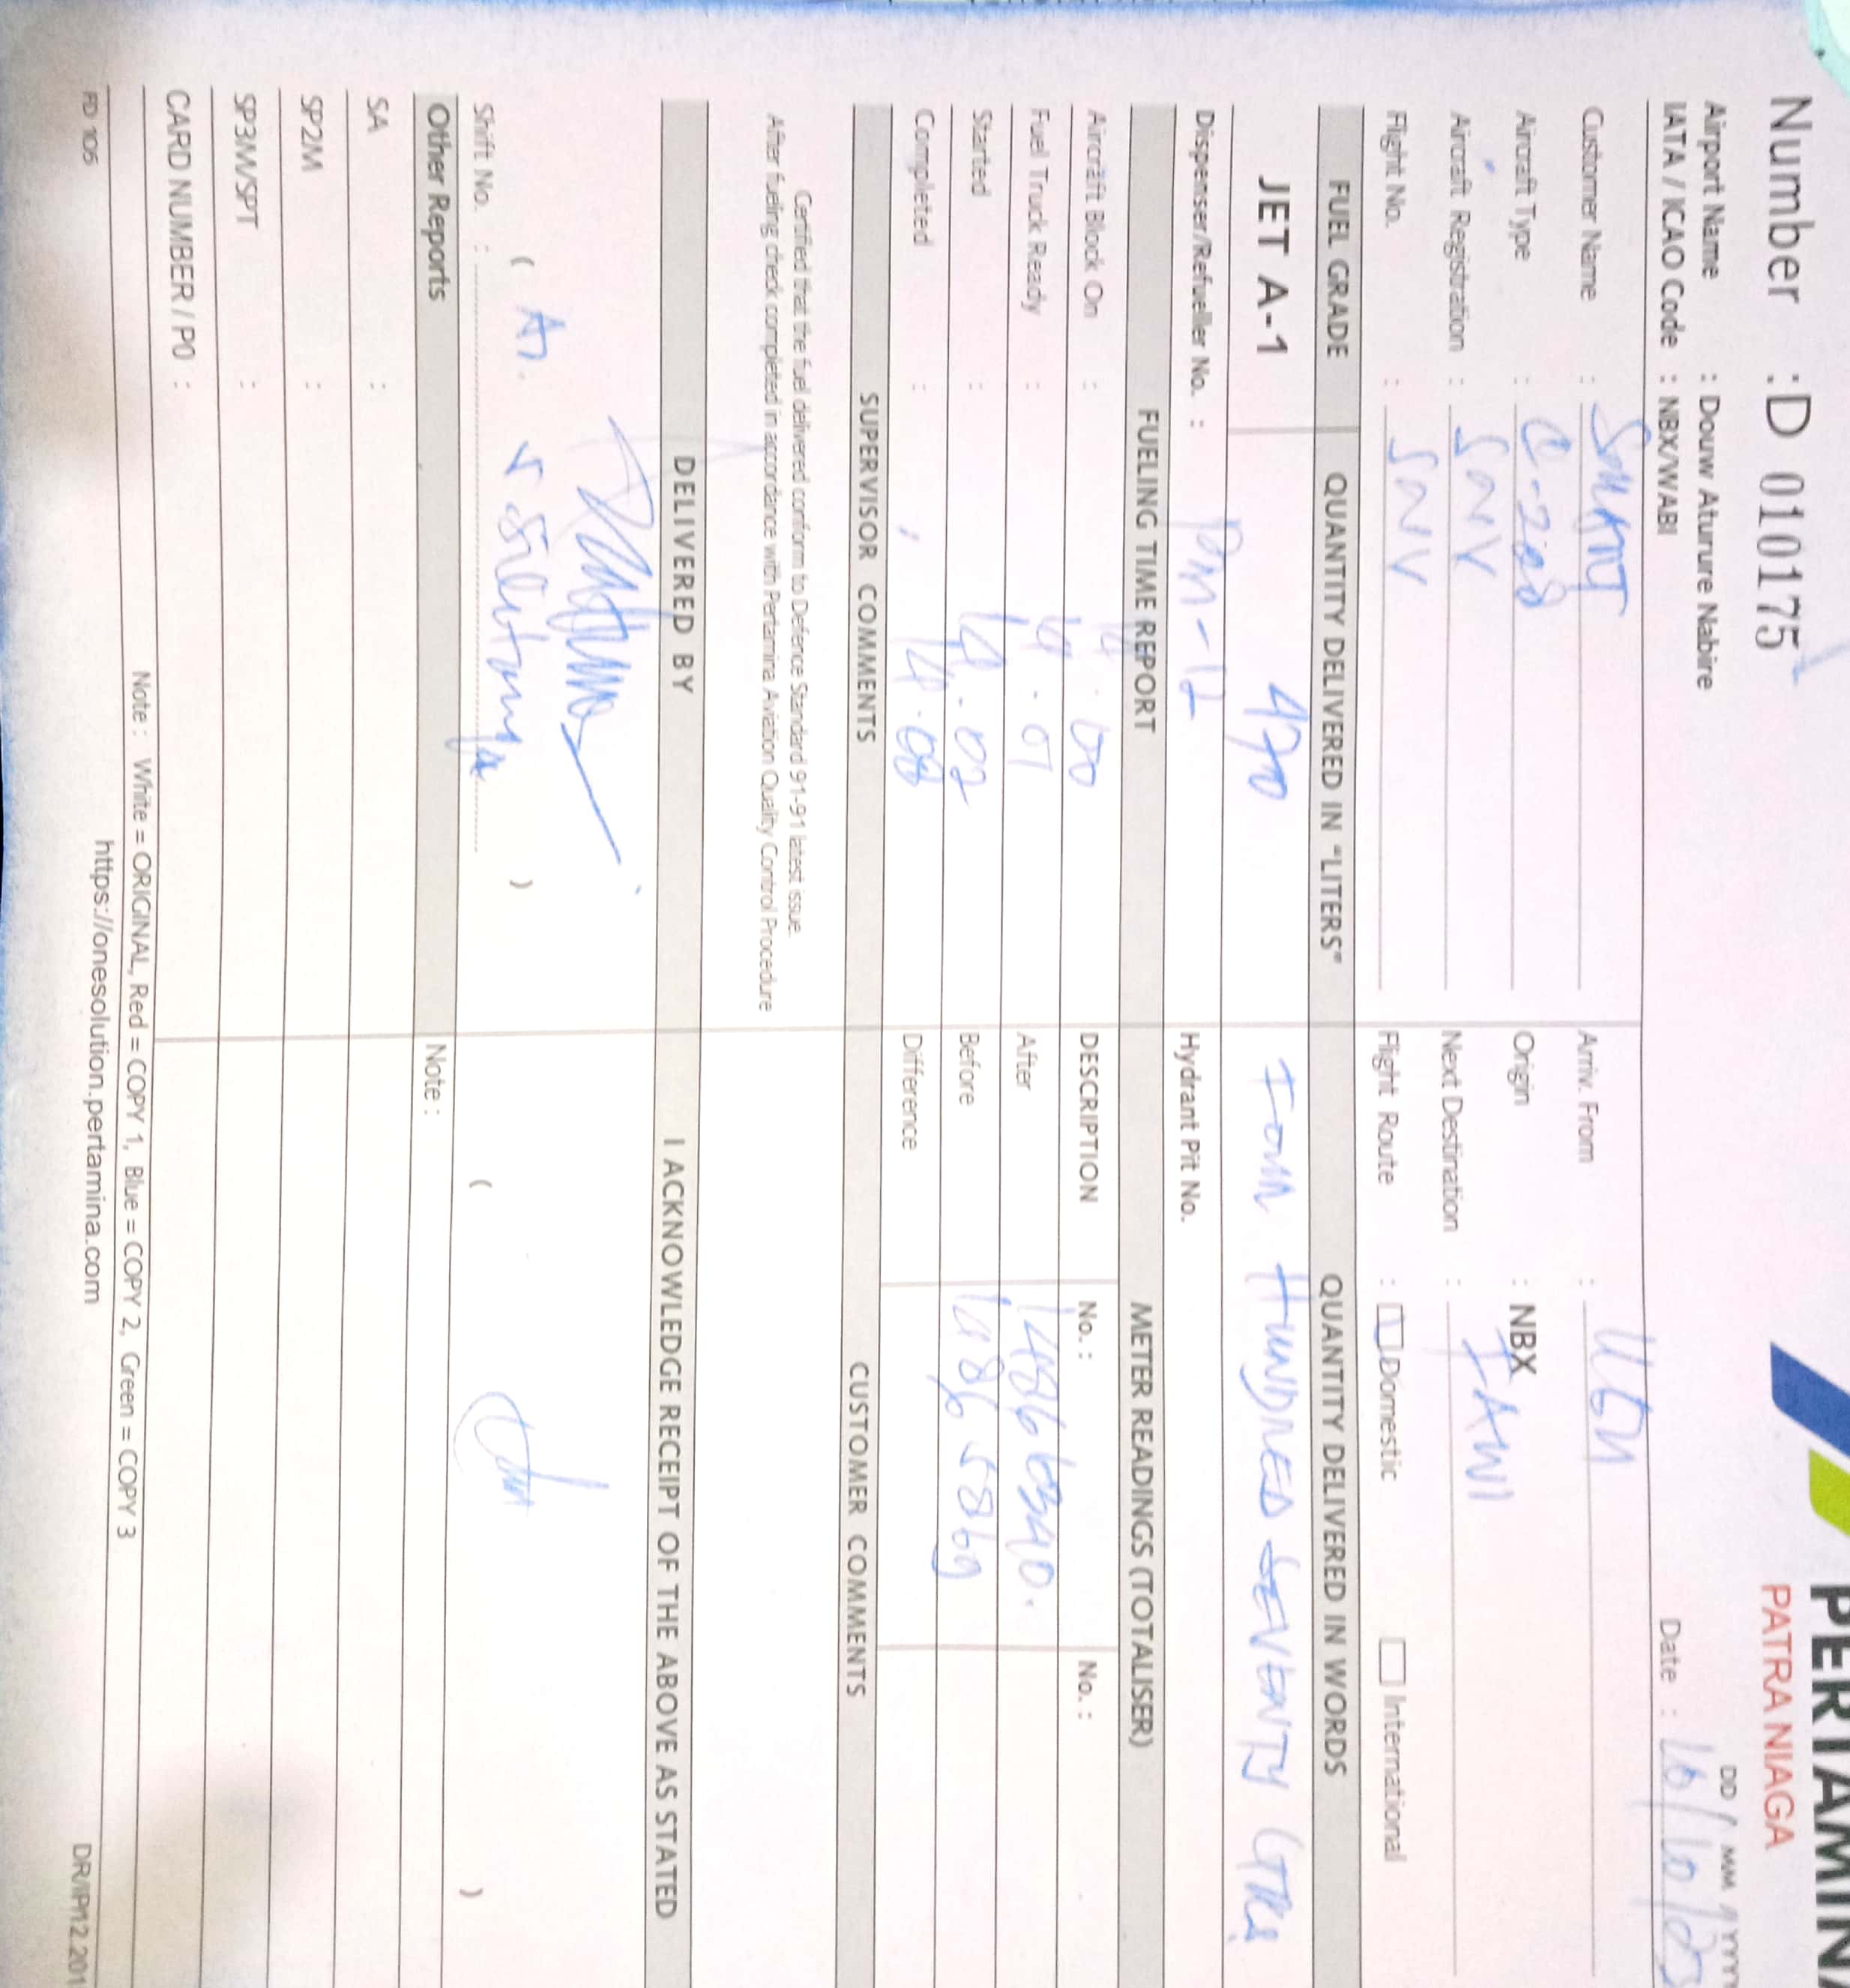 PERTAMINA
PATRA NIAGA
Number : D 0101752
DD / MM / YYYY
Airport Name : Douw Aturure Nabire
IATA / ICAO Code : NBX/WABI
Date : 16/10/25
Customer Name : SMART
Arriv. From :
Aircraft Type : C-208
Origin : NBX
Aircraft Registration : SNV
Next Destination :
Flight No. : SNV
Flight Route : Domestic International
FUEL GRADE QUANTITY DELIVERED IN "LITERS" QUANTITY DELIVERED IN WORDS
JET A-1 470 FOUR HUNDRED SEVENTY LTRS
Dispenser/Refueller No. :
Hydrant Pit No.
FUELING TIME REPORT METER READINGS (TOTALISER)
Aircraft Block On : 14.00 DESCRIPTION No. : No. :
Fuel Truck Ready : 14.01 After
Started : 14.02 Before
Completed : 14.08 Difference
SUPERVISOR COMMENTS CUSTOMER COMMENTS
Certified that the fuel delivered conform to Defence Standard 91-91 latest issue.
After fueling check completed in accordance with Pertamina Aviation Quality Control Procedure
DELIVERED BY I ACKNOWLEDGE RECEIPT OF THE ABOVE AS STATED
( ) ( )
Shift No. :
Other Reports Note :
SA :
SP2M :
SP3M/SPT :
CARD NUMBER / PO :
Note : White = ORIGINAL, Red = COPY 1, Blue = COPY 2, Green = COPY 3
FD 106 https://onesolution.pertamina.com